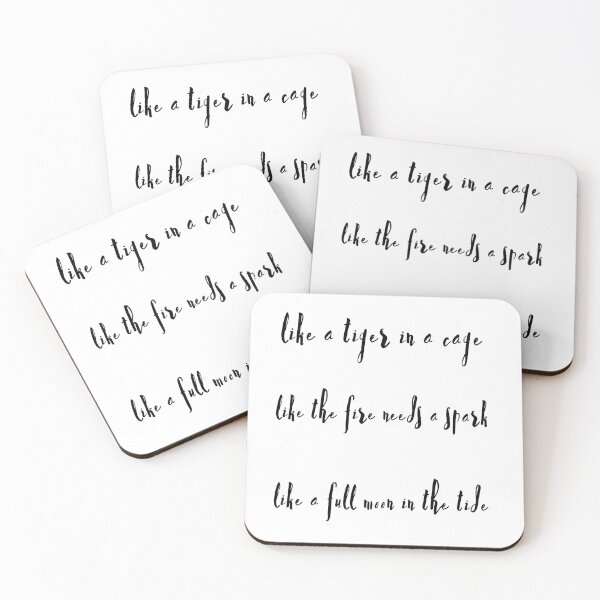 like a tiger in a cage
like the fire needs a
like a tiger in a cage
like the fire needs a spark
like a tiger in a cage
like the fire needs a spark
like a full moon
like a tiger in a cage
like the fire needs a spark
like a full moon in the tide